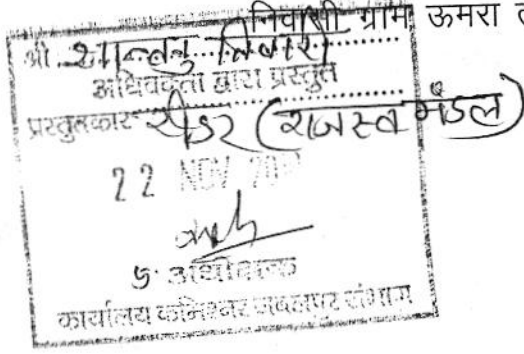 निवासी ग्राम ऊमरा
श्री शान्तनु तिवारी
अधिवक्ता द्वारा प्रस्तुत
प्रस्तुतकार रीडर (राजस्व मंडल)
22 NOV
अधीक्षक
कार्यालय कमिश्नर जबलपुर संभाग